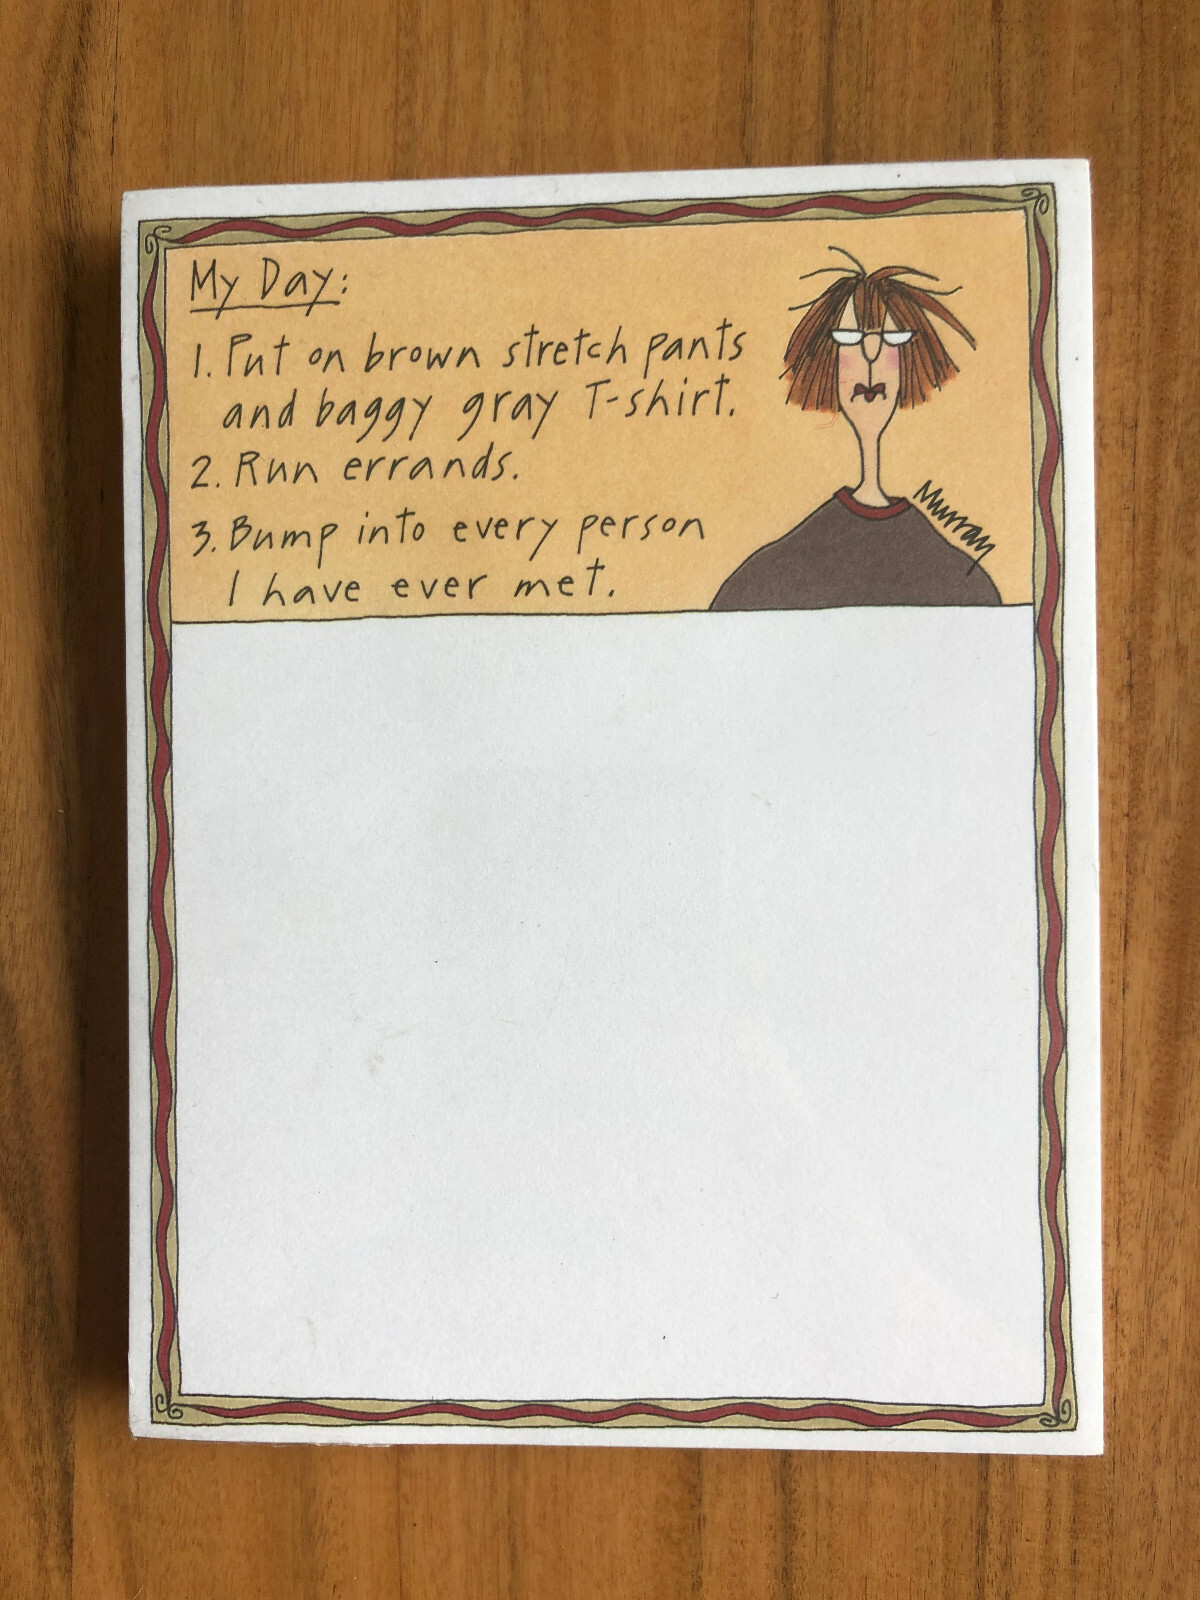 My Day:
1. Put on brown stretch pants
and baggy gray T-shirt.
2. Run errands.
3. Bump into every person
I have ever met.
Murray